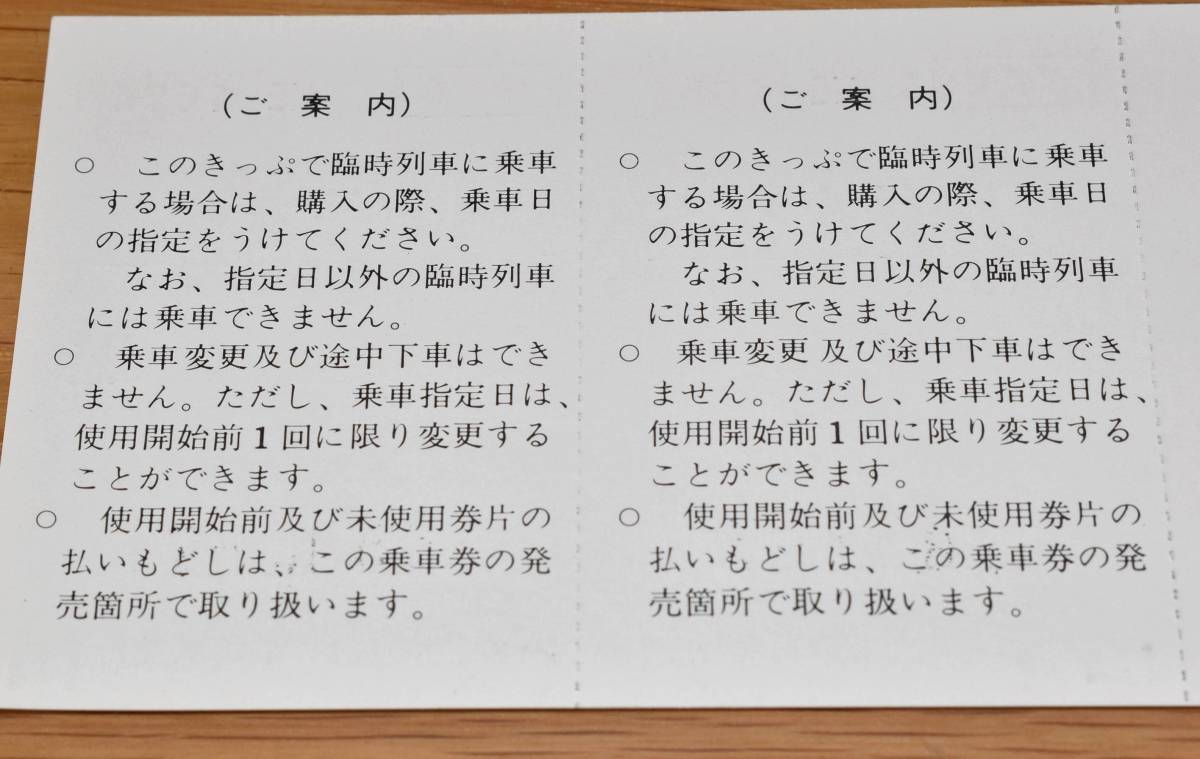 (ご 案 内)
○ このきっぷで臨時列車に乗車
する場合は、購入の際、乗車日
の指定をうけてください。
なお、指定日以外の臨時列車
には乗車できません。
○ 乗車変更及び途中下車はでき
ません。ただし、乗車指定日は、
使用開始前1回に限り変更する
ことができます。
○ 使用開始前及び未使用券片の
払いもどしは、この乗車券の発
売箇所で取り扱います。
(ご 案 内)
○ このきっぷで臨時列車に乗車
する場合は、購入の際、乗車日
の指定をうけてください。
なお、指定日以外の臨時列車
には乗車できません。
○ 乗車変更及び途中下車はでき
ません。ただし、乗車指定日は、
使用開始前1回に限り変更する
ことができます。
○ 使用開始前及び未使用券片の
払いもどしは、この乗車券の発
売箇所で取り扱います。